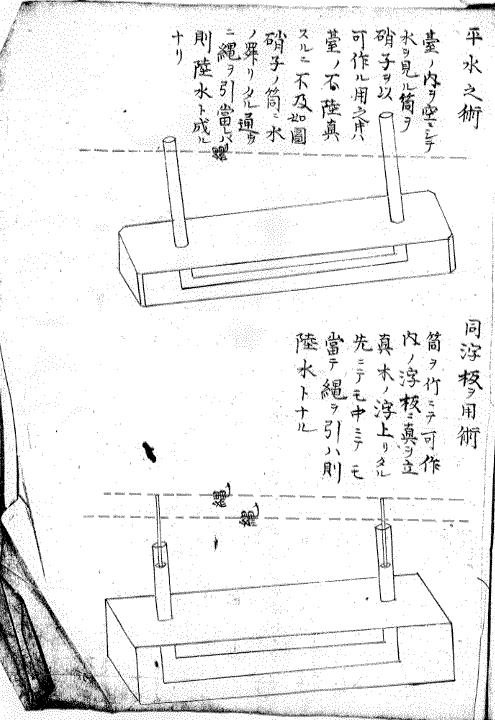 平水之術
臺ノ内ヲ空ニシテ
水ヲ見ル筒ヲ
硝子ヲ以
可作ル用之時ハ
臺ノ不陸真
スルニ不及如圖
硝子ノ筒ニ水
ノ昇リタル通ヲ
ニ縄ヲ引當レハ
則陸水ト成ル
ナリ
縄
同浮板ヲ用術
筒ヲ作ニテ可作
内ノ浮板ニ真ヲ立
真木ノ浮上リタル
先ニテモ中ニテモ
當テ縄ヲ引ハ則
陸水トナル
縄
縄